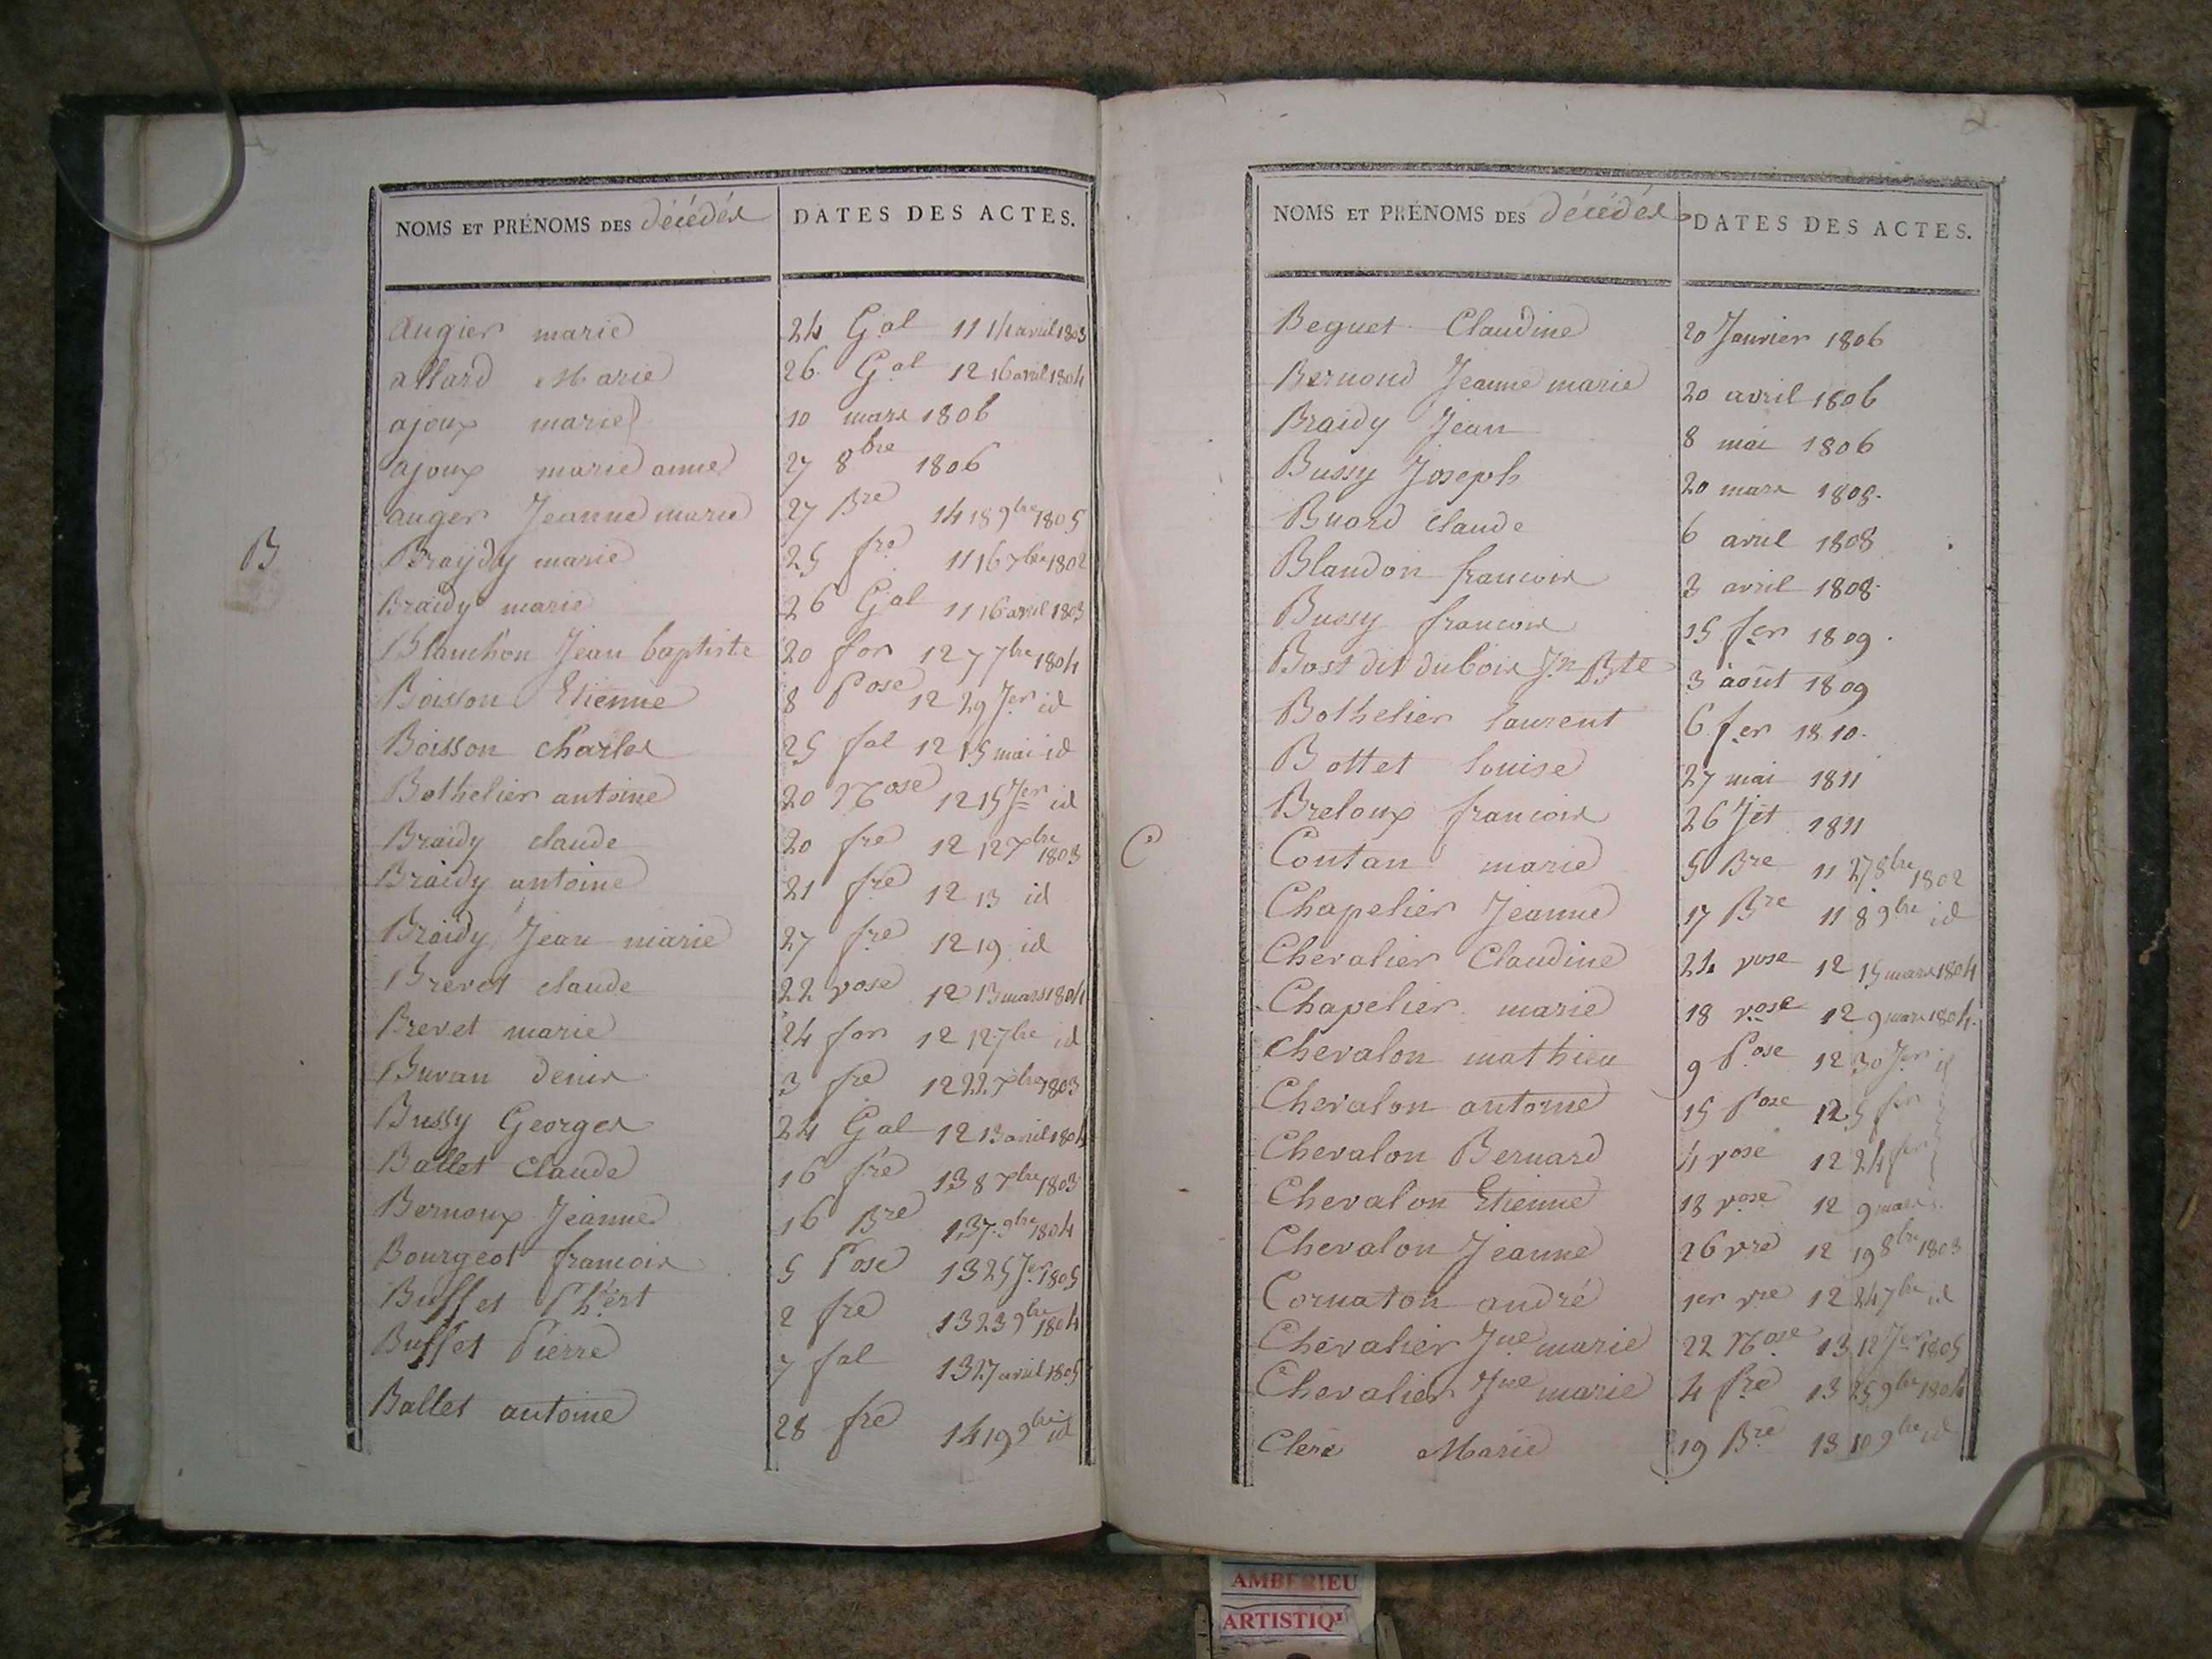 NOMS ET PRÉNOMS DES décédés DATES DES ACTES.
augier marie 24 Gal 11 14 avril 1803
allard Marie 26 Gal 12 16 avril 1804
ajoux marie 10 mars 1806
ajoux marie anne 27 8bre 1806
auger Jeanne marie 27 Bre 14 18 9bre 1805
B
Braydy marie 25 fre 11 16 7bre 1802
Braidy marie 26 Gal 11 16 avril 1803
Blanchon Jean baptiste 20 for 12 7 7bre 1804
Boisson Etienne 8 Pose 12 29 Jer id
Boisson Charles 25 fal 12 15 mai id
Bothelier antoine 20 Nose 12 15 Jer id
Braidy claude 20 fre 12 12 7bre 1803
Braidy antoine 21 fre 12 13 id
Braidy Jean marie 27 fre 12 19 id
Brevet claude 22 vose 12 13 mars 1804
Brevet marie 24 for 12 12 7bre id
Buvan denis 3 fre 12 22 7bre 1803
Bussy Georges 24 Gal 12 13 avril 1804
Ballet Claude 16 fre 13 8 7bre 1803
Bernoux Jeanne 16 Bre 13 7 9bre 1804
Bourgeot francois 5 Pose 13 25 Jer 1805
Buffet Phert 2 fre 13 23 9bre 1804
Buffet Pierre 7 fal 13 27 avril 1805
Ballet antoine 28 fre 14 19 9bre id
2
NOMS ET PRÉNOMS DES décédés DATES DES ACTES.
Beguet Claudine 20 Janvier 1806
Bernond Jeanne marie 20 avril 1806
Braidy Jean 8 mai 1806
Bussy Joseph 20 mars 1808.
Buord claude 6 avril 1808
Blandon francois 3 avril 1808.
Bussy francois 15 fer 1809.
Bost dit dubois Jn Bte 3 août 1809
Bothelier laurent 6 fer 1810.
Bottet louise 27 mai 1811
Breloux francois 26 Jet 1811
C
Contan marie 5 Bre 11 27 8bre 1802
Chapelier Jeanne 17 Bre 11 8 9bre id
Chevalier Claudine 24 vose 12 15 mars 1804
Chapelier marie 18 vose 12 9 mars 1804.
Chevalon mathieu 9 Pose 12 30 Jer id
Chevalon antoine 15 Pose 12 5 fer
Chevalon Bernard 4 vose 12 24 fer
Chevalon Etienne 18 vose 12 9 mars
Chevalon Jeanne 26 vre 12 19 8bre 1803
Cornaton andré 1er vre 12 24 7bre id
Chevalier Jne marie 22 Nose 13 12 Jer 1805
Chevalier Jne marie 4 fre 13 25 9bre 1804
Clerc Marie 19 Bre 13 10 9bre id
AMBERIEU
ARTISTIQ